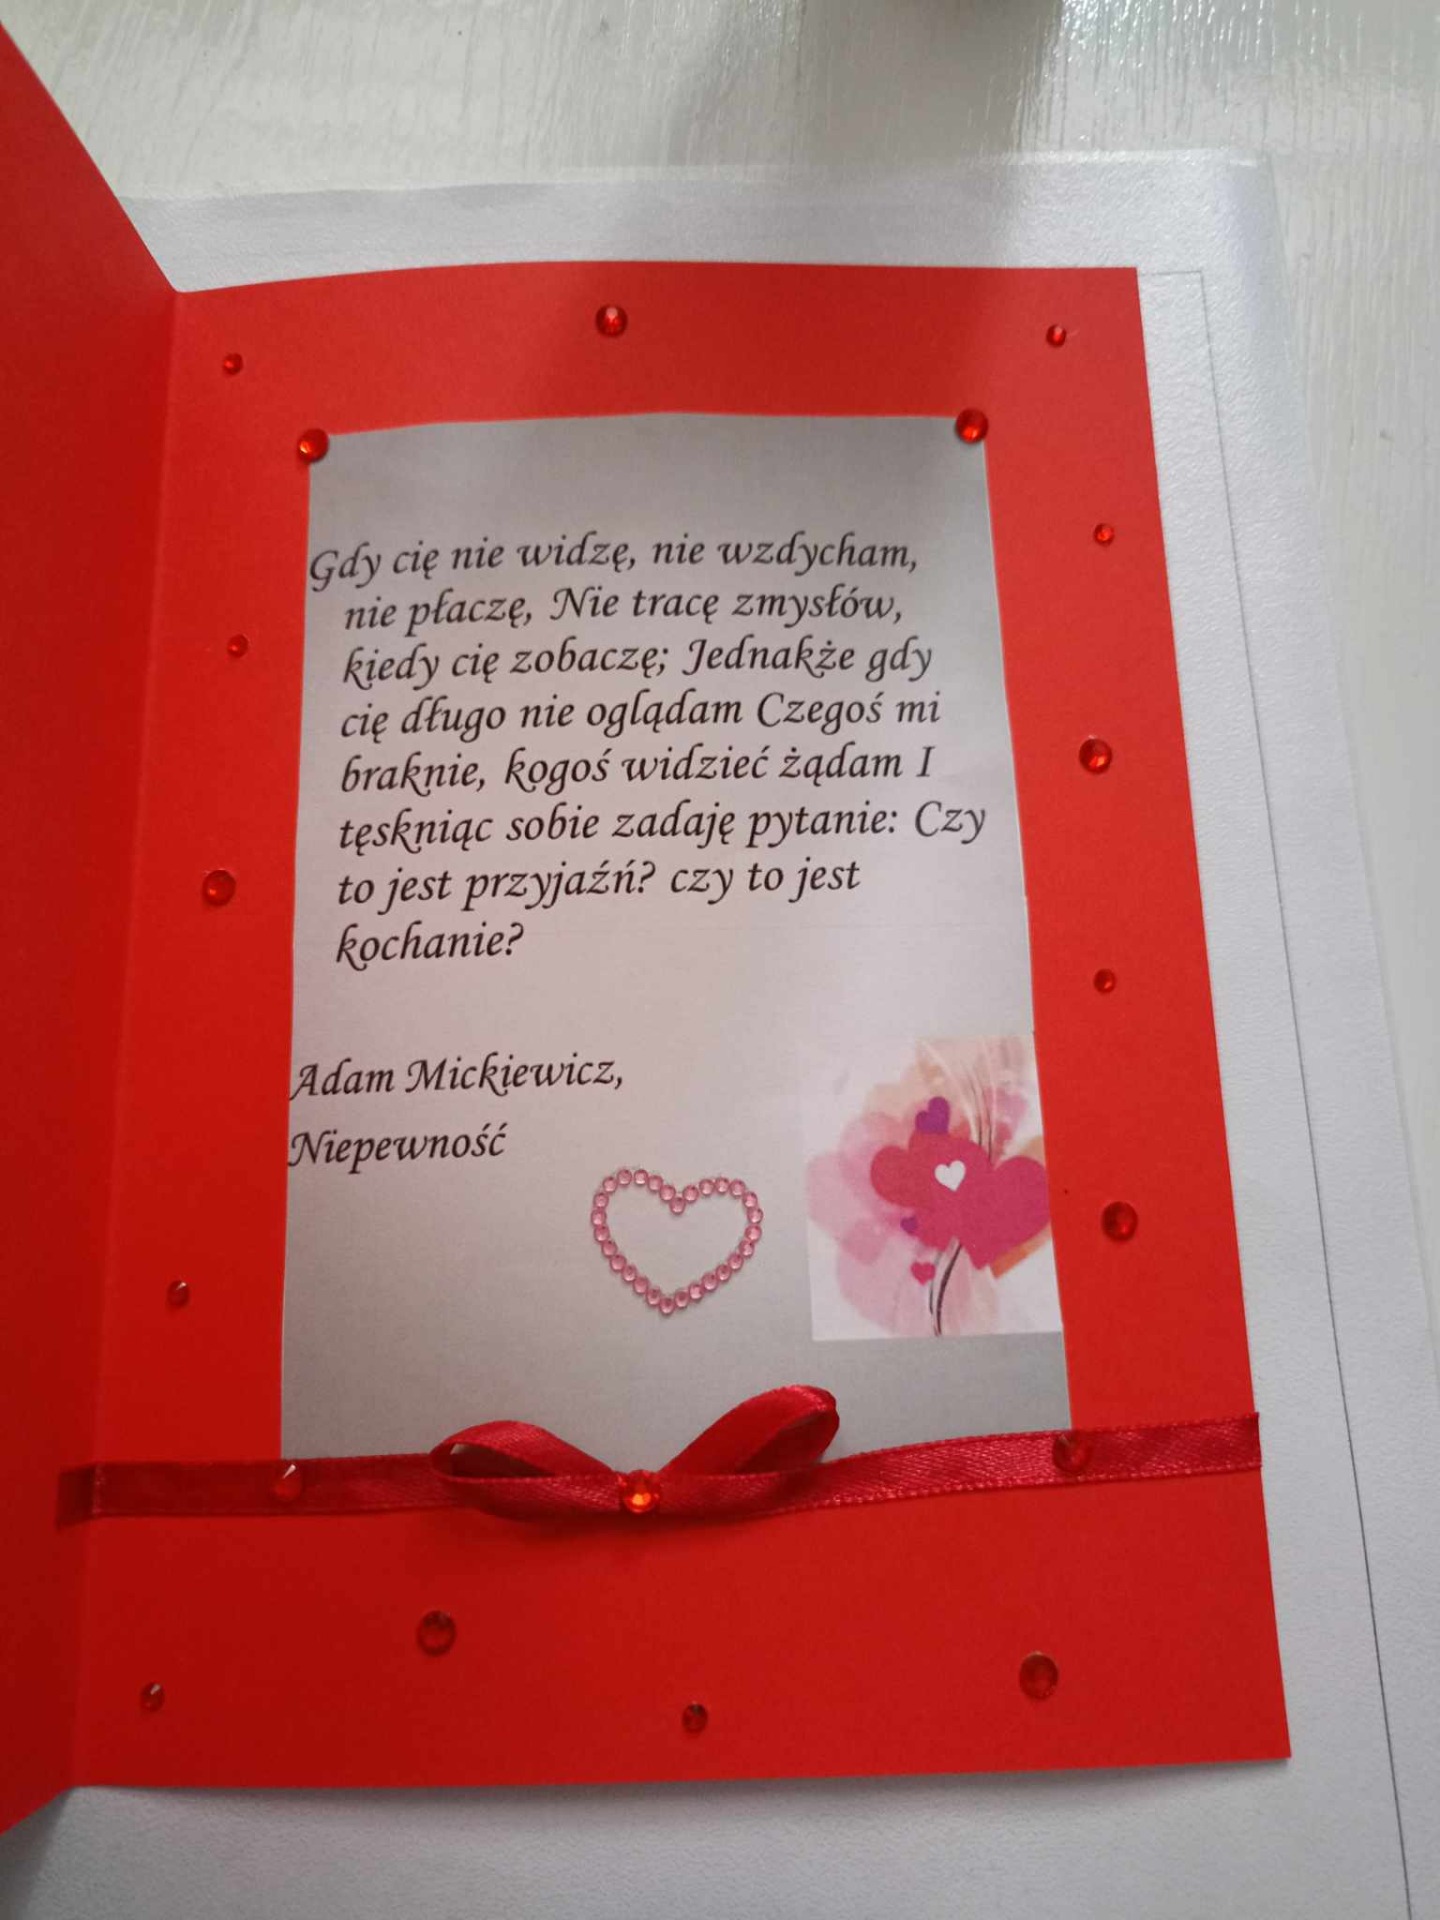 Gdy cię nie widzę, nie wzdycham,
nie płaczę, Nie tracę zmysłów,
kiedy cię zobaczę; Jednakże gdy
cię długo nie oglądam Czegoś mi
braknie, kogoś widzieć żądam I
tęskniąc sobie zadaję pytanie: Czy
to jest przyjaźń? czy to jest
kochanie?
Adam Mickiewicz,
Niepewność